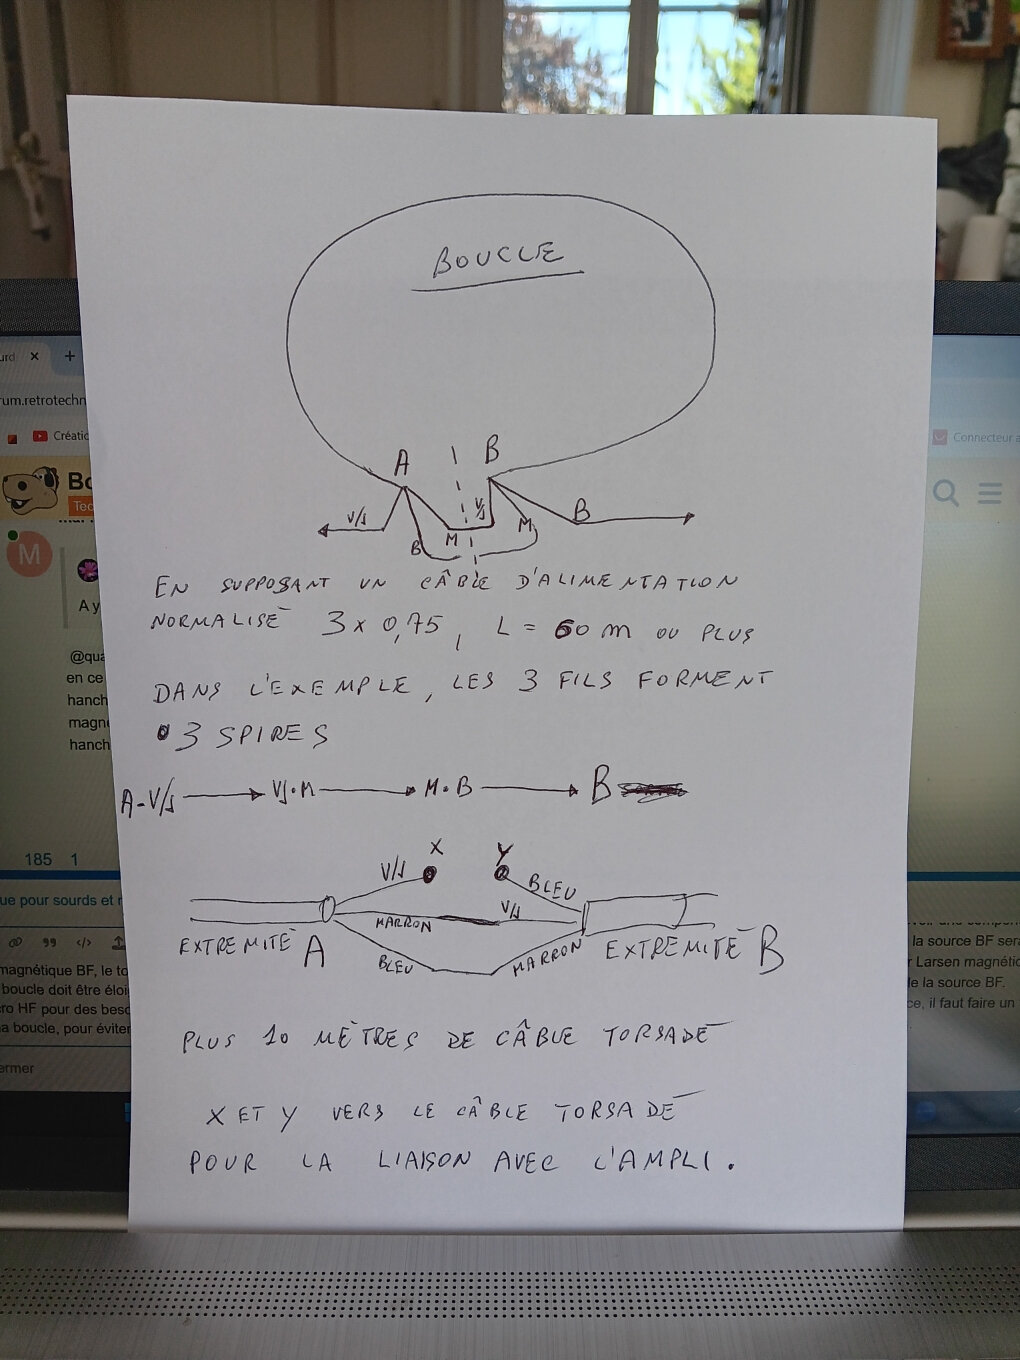 BOUCLE
A
B
V/J
B
M
V/J
M
B
EN SUPPOSANT UN CÂBLE D'ALIMENTATION
NORMALISÉ 3x0,75, L = 60 m OU PLUS
DANS L'EXEMPLE, LES 3 FILS FORMENT
3 SPIRES
A-V/J → VJ.M → M.B → B
X
Y
V/J
BLEU
MARRON
V/J
EXTREMITÉ A
BLEU
MARRON
EXTREMITÉ B
PLUS 10 MÈTRES DE CÂBLE TORSADÉ
X ET Y VERS LE CÂBLE TORSADÉ
POUR LA LIAISON AVEC L'AMPLI.
urd
um.retrotechn
Créatic
Connecteur a
Bo
Tec
M
A y
@qua
en ce
hanch
magne
hanch
185 1
ue pour sourds et
magnétique BF, le to
boucle doit être éloi
ro HF pour des beso
a boucle, pour éviter
ermer
la source BF sera
r Larsen magnétic
de la source BF.
ce, il faut faire un